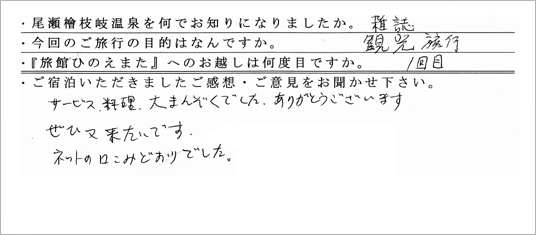 ・尾瀬檜枝岐温泉を何でお知りになりましたか。 雑誌
・今回のご旅行の目的はなんですか。 観光 旅行
・『旅館ひのえまた』へのお越しは何度目ですか。 1回目
・ご宿泊いただきましたご感想・ご意見をお聞かせ下さい。
サービス、料理、大まんぞくでした。ありがとうございます
ぜひ又来たいです。
ネットの口こみどおりでした。